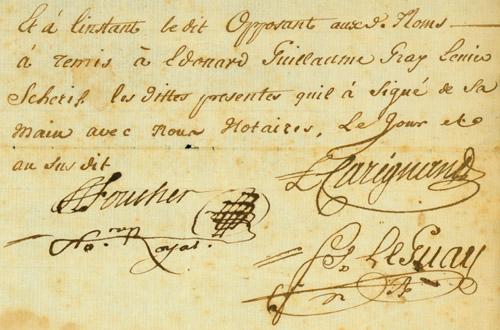 Et á l'instant le dit Opposant aux d. Noms
á remis à Edouard Guillaume Gray Ecuier
Scherif. les dittes presentes quil à signé de sa
main avec Nous Notaires, Le Jour et
an sus dit
Foucher
Not. Royal.
L Carignant
Js. LeGuay